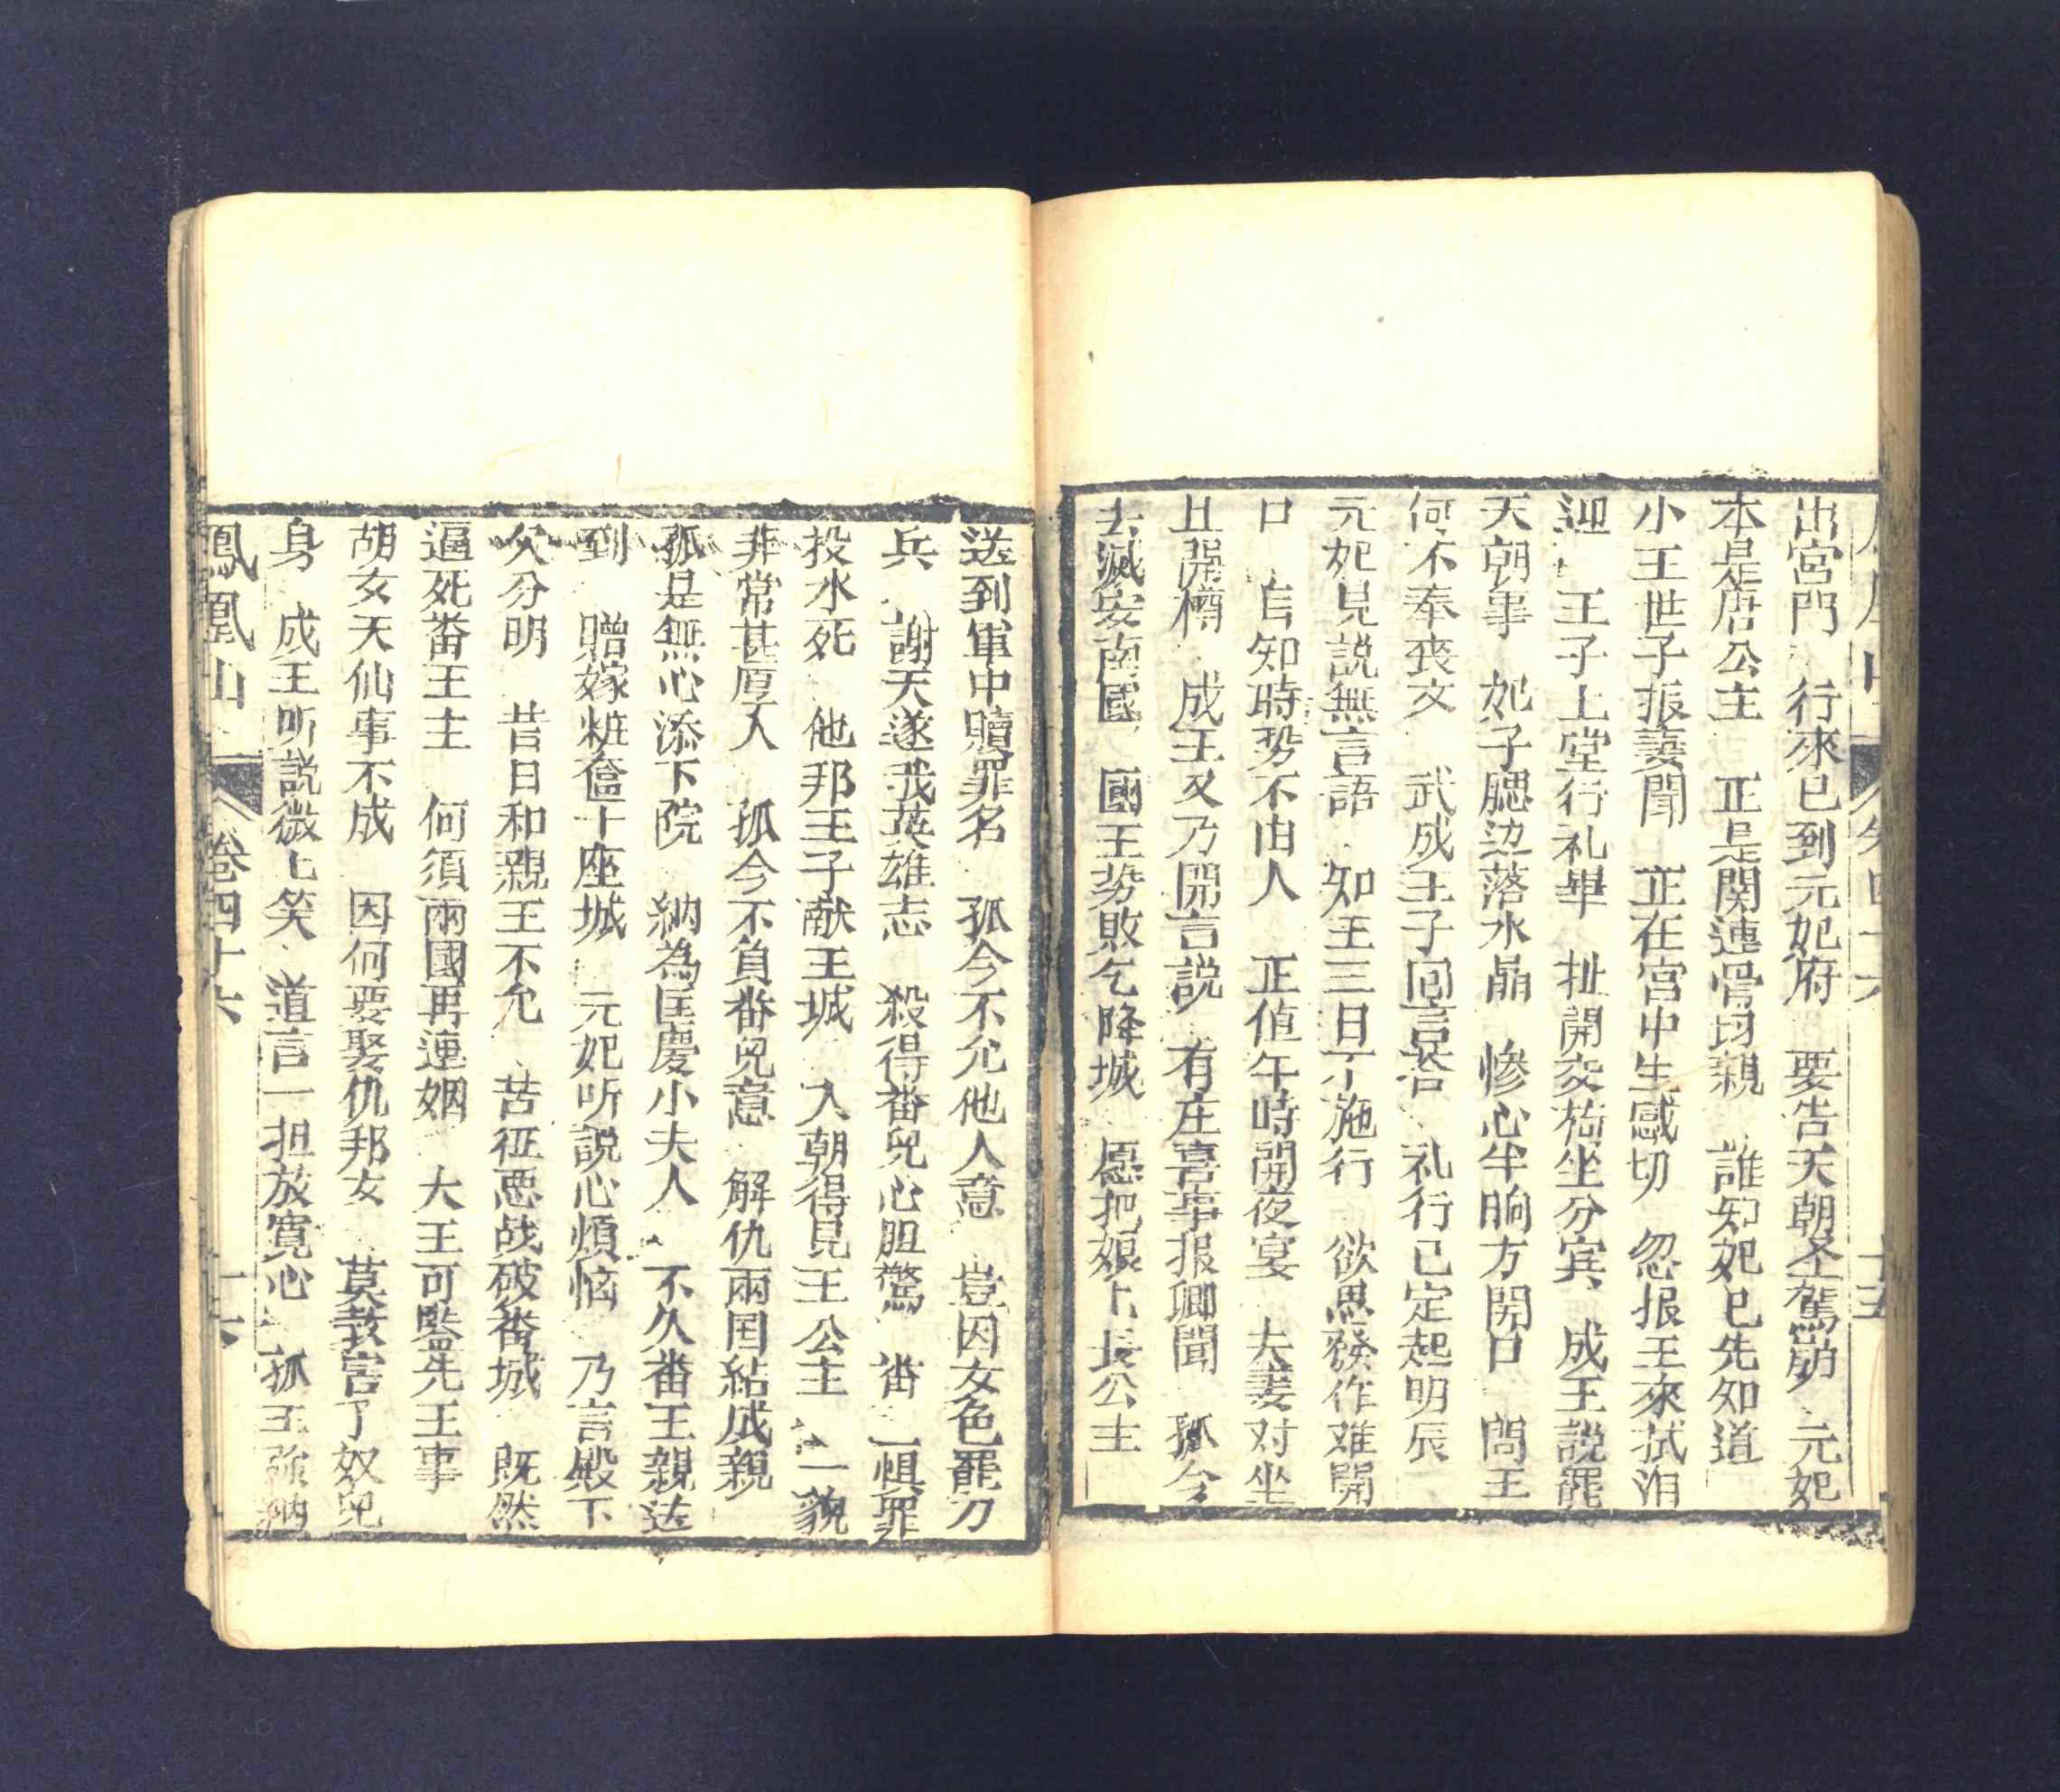 出宮門　行來已到元妃府　要告天朝圣駕崩　元妃
本是唐公主　正是関連骨肉親　誰知妃已先知道
小王世子报妻聞　正在宮中生感切　忽报王來拭泪
迎　王子上堂行礼畢　扯開交椅坐分宾　成王説罷
天朝事　妃子腮边落水晶　惨心半晌方開口　問王
何不奉丧文　武成王子回言答　礼行已定起明辰
元妃見説無言語　知王三日才施行　欲思發作难開
口　自知時势不由人　正值午時開夜宴　夫妻对坐
且開樽　成王又乃開言説　有庄喜事报卿聞　孤今
去滅安南國　國王势敗乞降城　愿把娘下長公主
送到軍中贖罪名　孤今不允他人意　豈因女色罷刀
兵　謝天遂我英雄志　殺得畨兒心胆驚　畨王惧罪
投水死　他邦王子献王城　入朝得見王公主　一貌
非常甚厚人　孤今不負畨兒意　解仇兩国結成親
孤是無心添下院　納為匡慶小夫人　不久畨王親送
到　贈嫁粧奩十座城　元妃听説心煩恼　乃言殿下
欠分明　昔日和親王不允　苦征悪战破畨城　既然
逼死畨王主　何須兩國再連姻　大王可鑒先王事
胡女天仙事不成　因何要娶仇邦女　莫教害了奴兒
身　成王听説微匕笑　道言一担放寛心　孤王强納
鳳凰山　卷四十六　十六